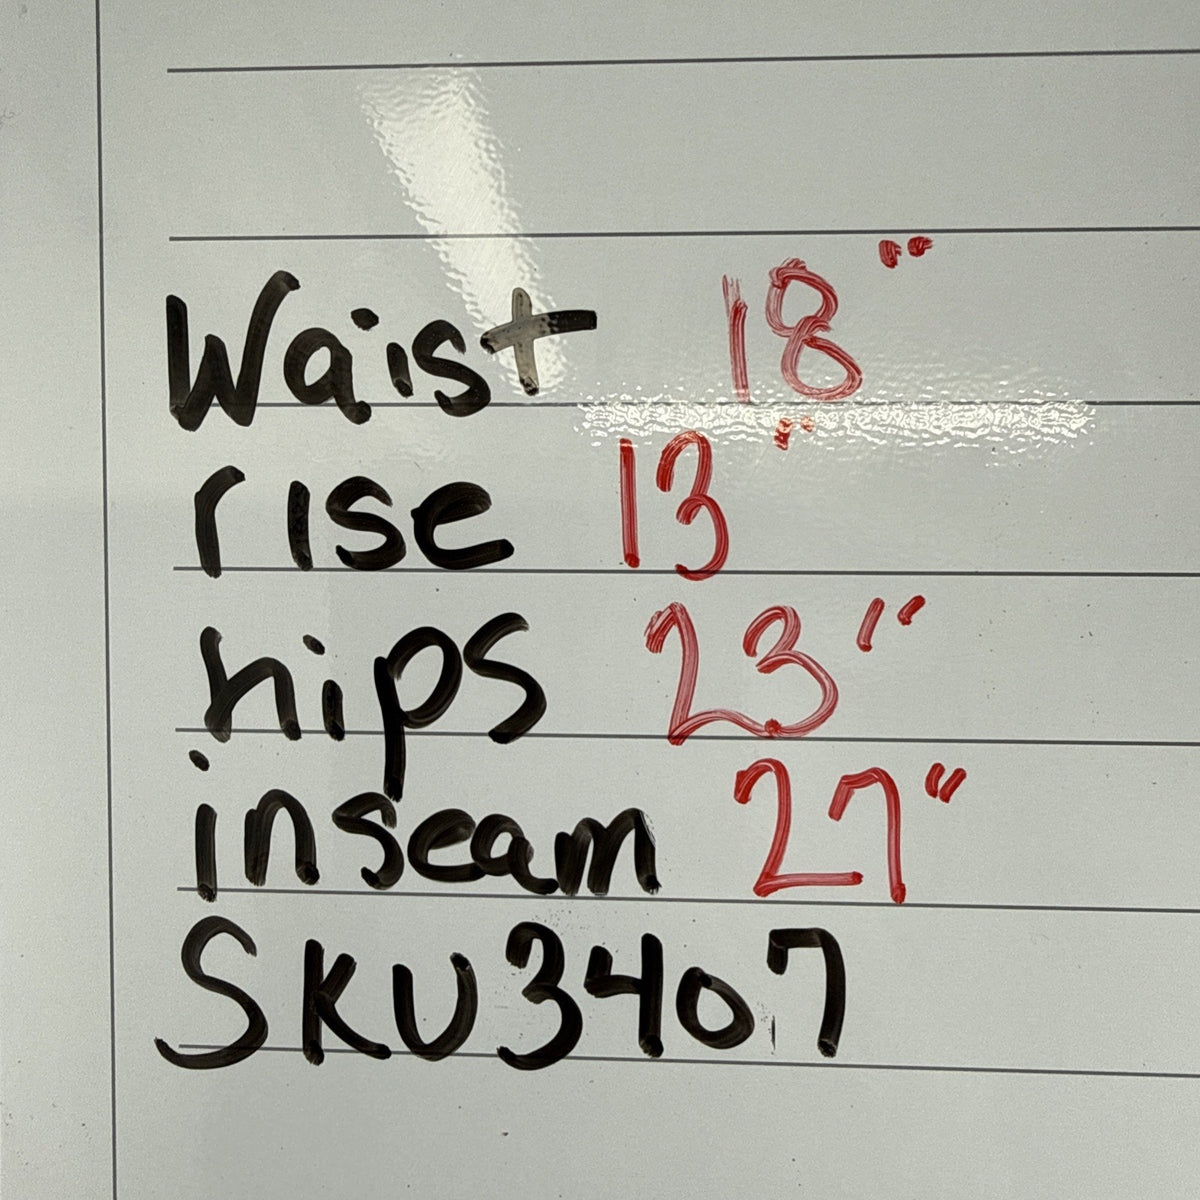 Waist 18"
rise 13"
hips 23"
inseam 27"
SKU3407